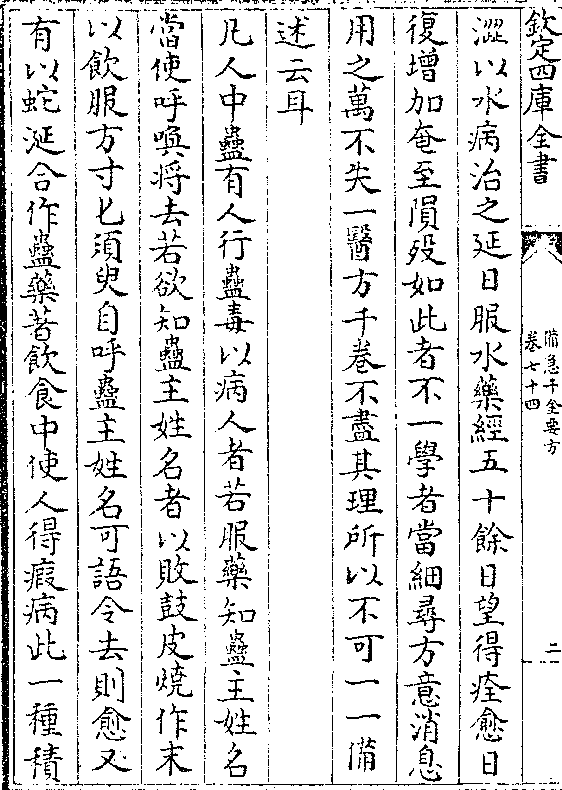 欽定四庫全書
備急千金要方
卷七十四
二
澀以水病治之延日服水藥經五十餘日望得痊愈日
復增加奄至隕殁如此者不一學者當細尋方意消息
用之萬不失一醫方千卷不盡其理所以不可一一備
述云耳
凡人中蠱有人行蠱毒以病人者若服藥知蠱主姓名
當使呼喚將去若欲知蠱主姓名者以敗鼓皮燒作末
以飲服方寸匕須臾自呼蠱主姓名可語令去則愈又
有以蛇涎合作蠱藥著飲食中使人得瘕病此一種積